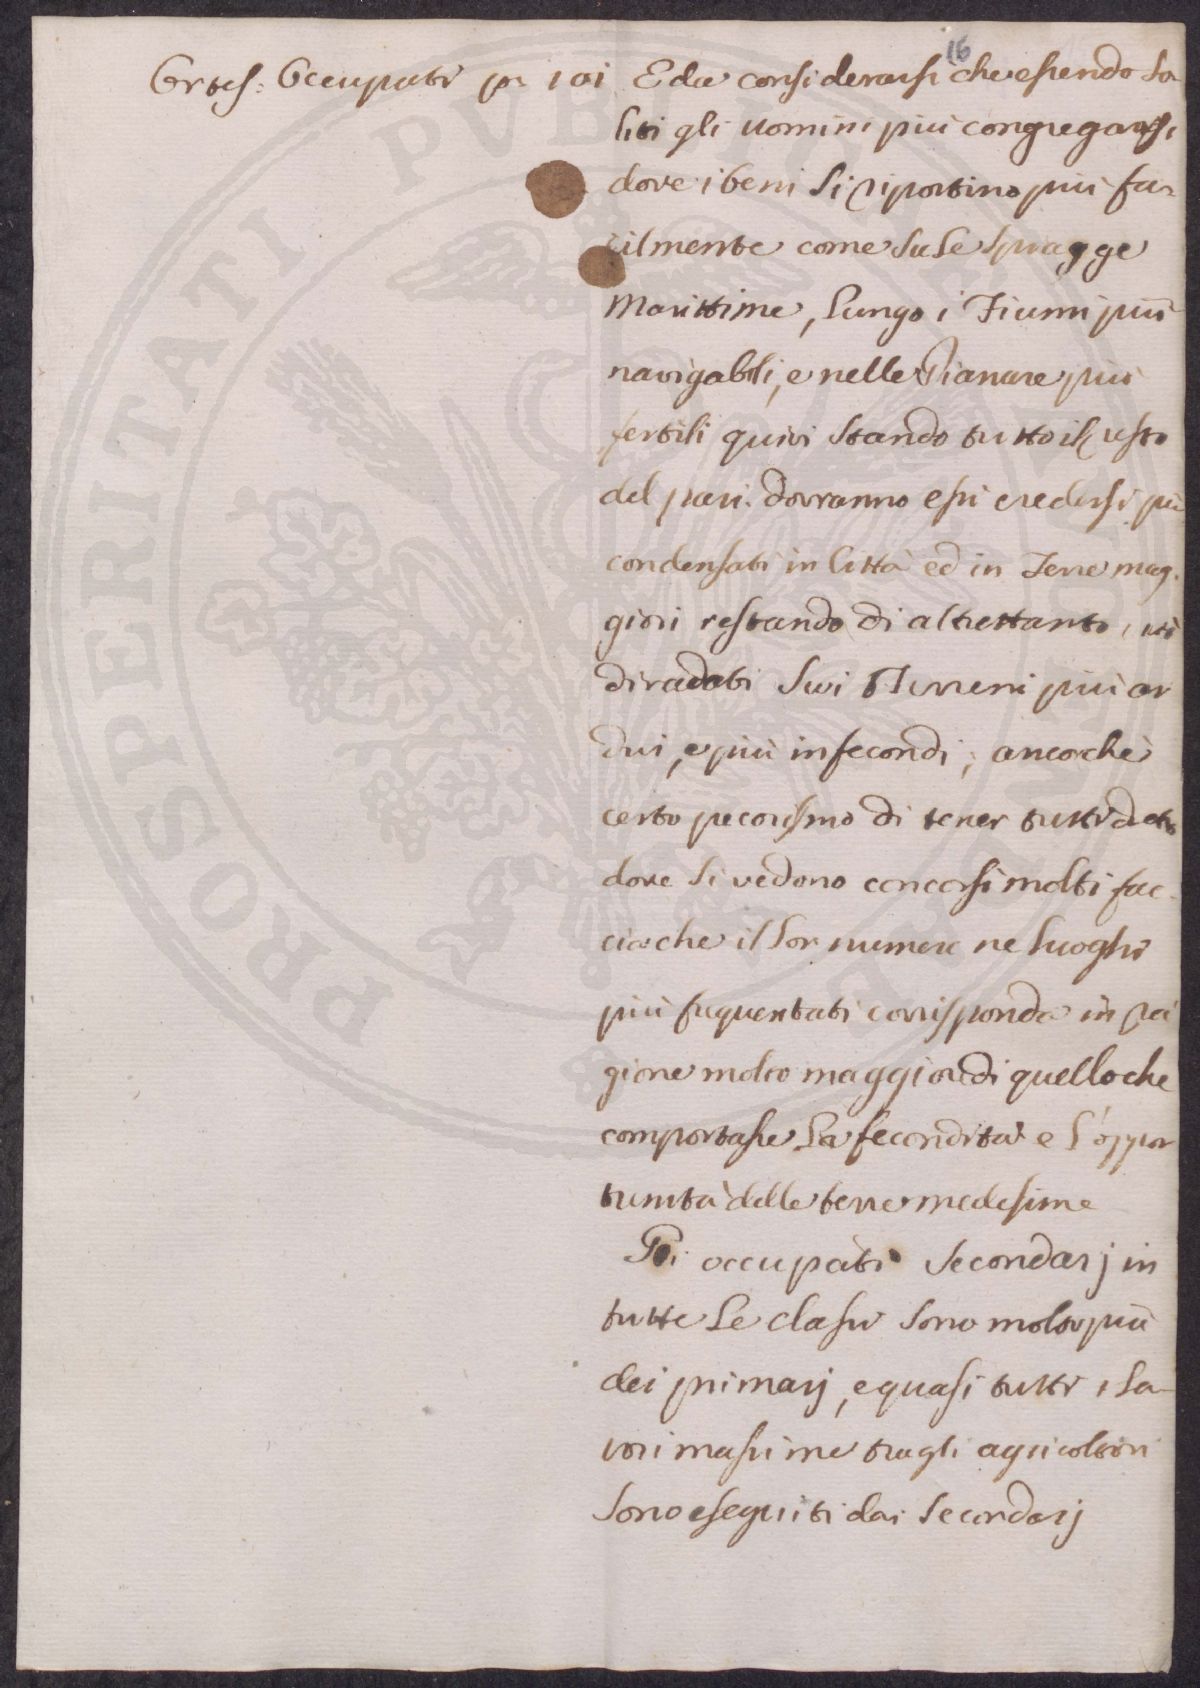 16
Ortes: Occupati p. 101 E da considerarsi che essendo so
liti gli uomini più congregarsi
dove i beni si riportino più fa-
cilmente come su le spiagge
Marittime, lungo i Fiumi più
navigabili, e nelle Pianure più
fertili quivi stando tutto il resto
del pari. dovranno essi credersi più
condensati in Città ed in Terre mag.
giori restando di altrettanto
diradati sui Terreni più ar
dui, e più infecondi, ancorchè
certo pecorismo di tener tutti dietro
dove si vedono concorsi molti fac-
cia che il lor numero ne luoghi
più frequentati corrisponda in ra
gione molto maggiore di quello che
comportasse la fecondità e l'oppor
tunità delle terre medesime
Gli occupati secondarj in
tutte le classi sono molto più
dei primarj, e quasi tutti i la-
vori massime tragli agricoltori
sono eseguiti dai secondarj
PROSPERITATI PUBLICAE